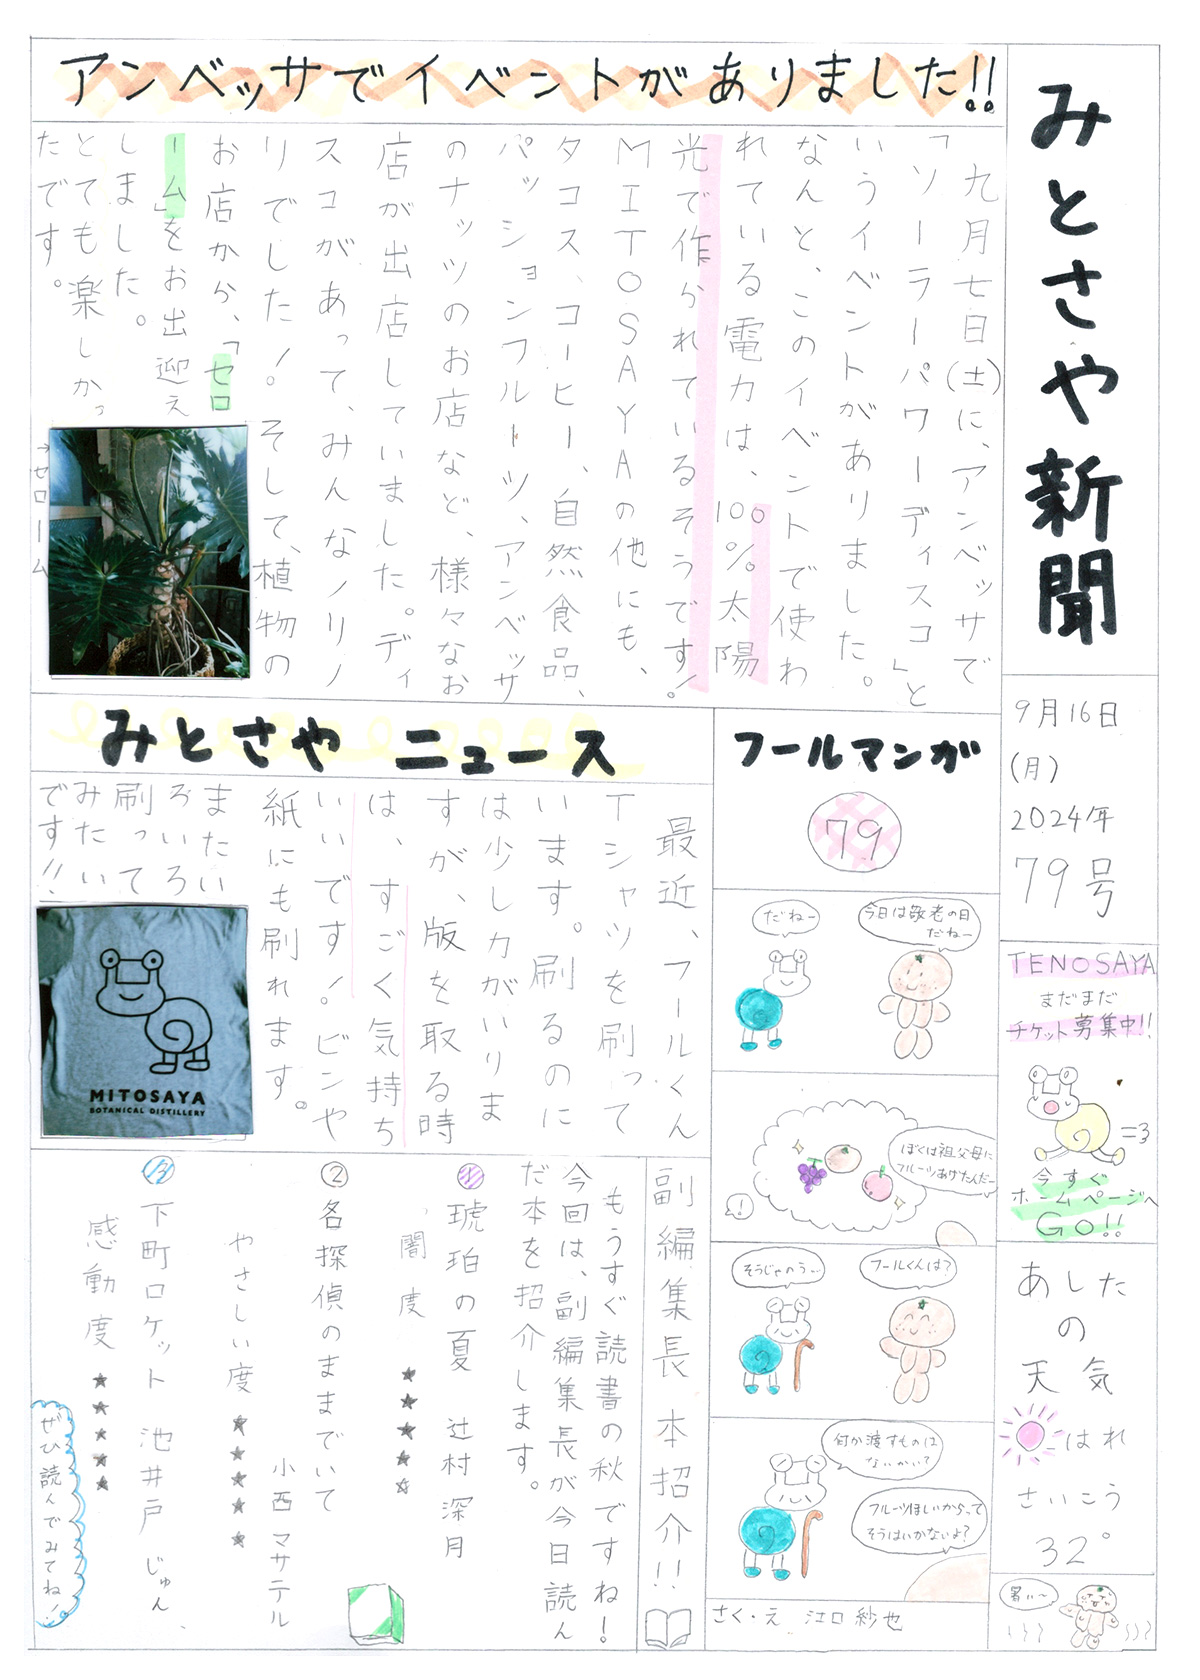 みとさや新聞
9月16日
(月)
2024年
79号
TENOSAYA
まだまだ
チケット募集中!!
=3
今すぐ
ホームページへ
GO!!
あしたの天気
はれ
さいこう
32°
暑い〜
アンベッサでイベントがありました!!
九月七日(土)に、アンベッサで
「ソーラーパワーディスコ」と
いうイベントがありました。
なんと、このイベントで使わ
れている電力は、100%太陽
光で作られているそうです!
MITOSAYAの他にも、
タコス、コーヒー、自然食品、
パッションフルーツ、アンベッサ
のナッツのお店など、様々なお
店が出店していました。ディ
スコがあって、みんなノリノ
リでした!そして、植物の
お店から、「セロ
ーム」をお出迎え
しました。
とても楽しかっ
たです。
→セローム
みとさや ニュース
最近、フールくん
Tシャツを刷って
います。刷るのに
は少し力がいりま
すが、版を取る時
は、すごく気持ち
いいです!ビンや
紙にも刷れます。
またい
ろいろ
刷って
みたい
です!!
MITOSAYA
BOTANICAL DISTILLERY
フールマンガ
79
今日は敬老の日
だねー
だねー
ぼくは祖父母に
フルーツあげたんだー
!
フールくんは?
そうじゃのう…
何か渡すものは
ないかい?
フルーツほしいからって
そうはいかないよ?
さく・え 江口紗也
副編集長 本招介!!
もうすぐ読書の秋ですね!
今回は、副編集長が今日読ん
だ本を招介します。
①琥珀の夏 辻村深月
闇度 ★★★★☆
②各探偵のままでいて
小西マサテル
やさしい度 ★★★★★
③下町ロケット 池井戸じゅん
感動度 ★★★★★
ぜひ読んでみてね!